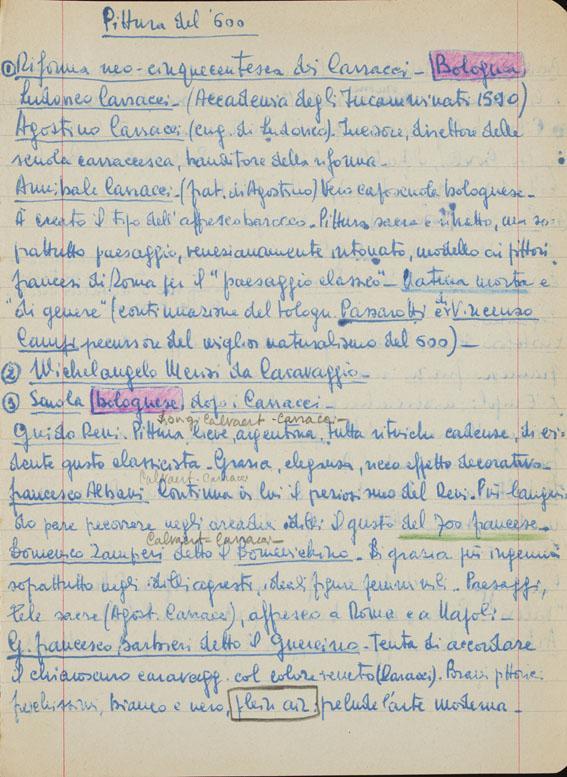 Pittura del '600
① Riforma neo-cinquecentesca dei Carracci - Bologna,
Ludovico Carracci - (Accademia degli Incamminati 1590)
Agostino Carracci - (cug. di Ludovico). Incisore, direttore della
scuola carraccesca, banditore della riforma -
Annibale Carracci - (frat. di Agostino) Vero caposcuola bolognese -
È creato il tipo dell'affresco barocco - Pittura sacra e ritratto, ma so-
prattutto paesaggio, venezianamente intonato, modello ai pittori
francesi di Roma per il "paesaggio classico" - Natura morta e
"di genere" (continuazione del bologn. Passarotti e di Vincenzo
Campi precursore del miglior naturalismo del 600) -
② Michelangelo Merisi da Caravaggio -
③ Scuola bolognese dopo i Carracci -
Calvaert - Carracci -
Guido Reni. Pittura lieve, argentina, tutta ritmiche cadenze, di evi-
dente gusto classicista - Grazia, eleganza, ricco effetto decorativo -
Calvaert - Carracci
Francesco Albani Continua in lui il preziosismo del Reni. Più langui-
do pare precorrere negli arcadia idilli il gusto del 700 francese -
Calvaert - Carracci -
Domenico Zampieri detto il Domenichino - Di grazia più ingenua
soprattutto negli idilli agresti, ideali figure femminili - Paesaggi,
Pale sacre (Agost. Carracci), affresco a Roma e a Napoli -
G. Francesco Barbieri detto il Guercino - Tenta di accordare
il chiaroscuro caravagg. col colore veneto (Caracci). Brani pittori
freschissimi, bianco e nero, plein air: prelude l'arte moderna -